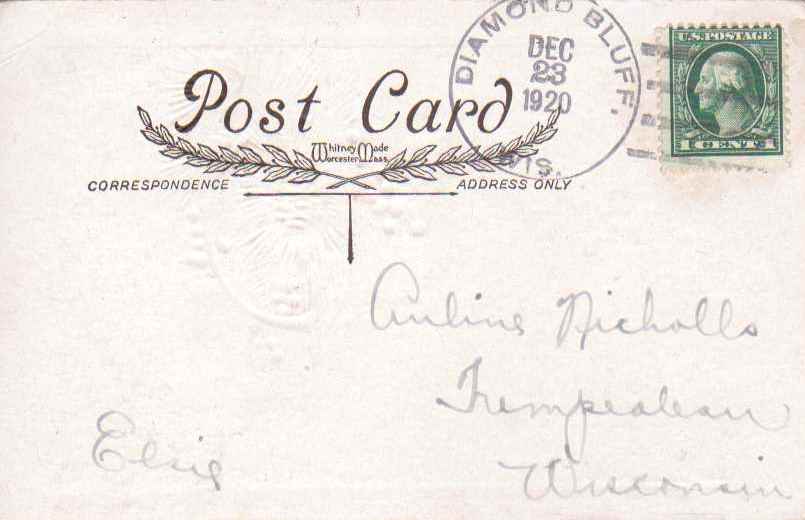 DIAMOND BLUFF.
WIS.
DEC
23
1920
U.S. POSTAGE
1 CENT 1
Post Card
Whitney Made
Worcester Mass.
CORRESPONDENCE
ADDRESS ONLY
Auline Nicholls
Trempealeau
Wisconsin
Elsie